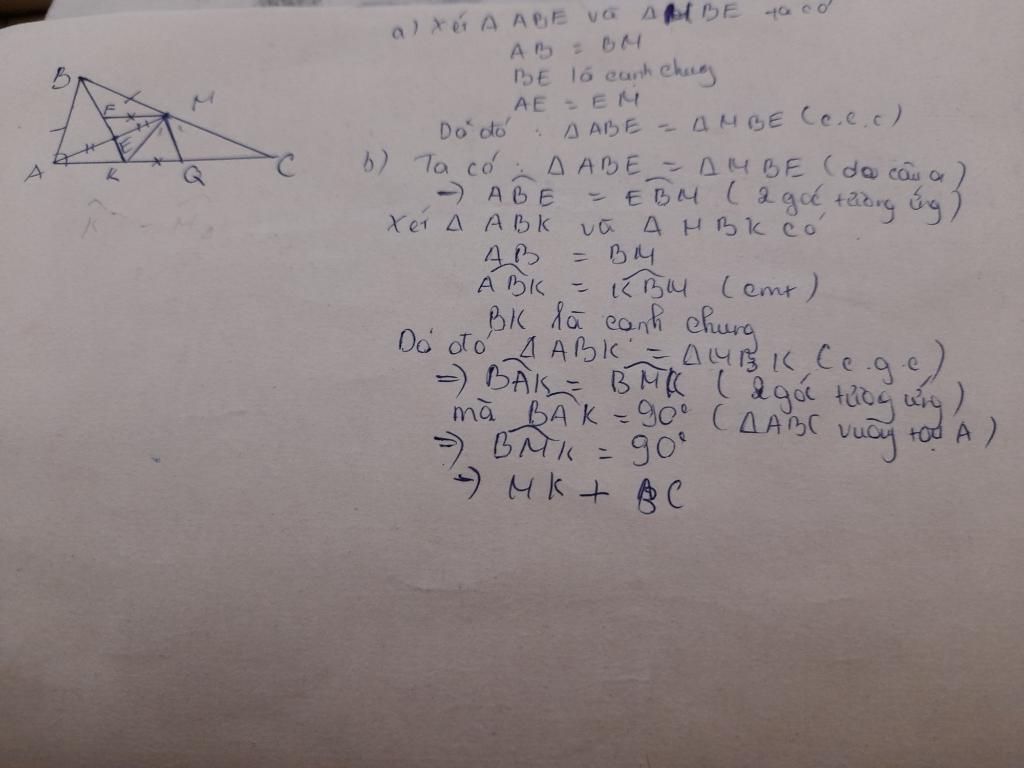 a) Xét Δ ABE và Δ MBE ta có
AB = BM
BE là cạnh chung
AE = EM
Do đó : Δ ABE = Δ MBE (c.c.c)
b) Ta có : Δ ABE = Δ MBE (do câu a)
=) ABE = EBM ( 2 góc tương ứng)
Xét Δ ABK và Δ MBK có
AB = BM
ABK = KBM (cmt)
BK là cạnh chung
Do đó Δ ABK = Δ MBK (c.g.c)
=) BAK = BMK ( 2 góc tương ứng)
mà BAK = 90° (ΔABC vuông tại A)
=) BMK = 90°
=) MK + BC
B
F M
E
A K Q C